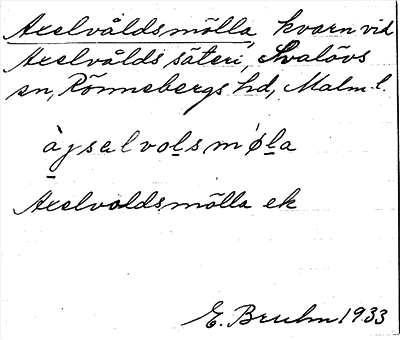 Axelvåldsmölla, kvarn vid
Axelvålds säteri, Svalövs
sn, Rönnebergs hd, Malm. l.
àjsalvolsmǿla
Axelvoldsmölla ek
E. Bruhn 1933